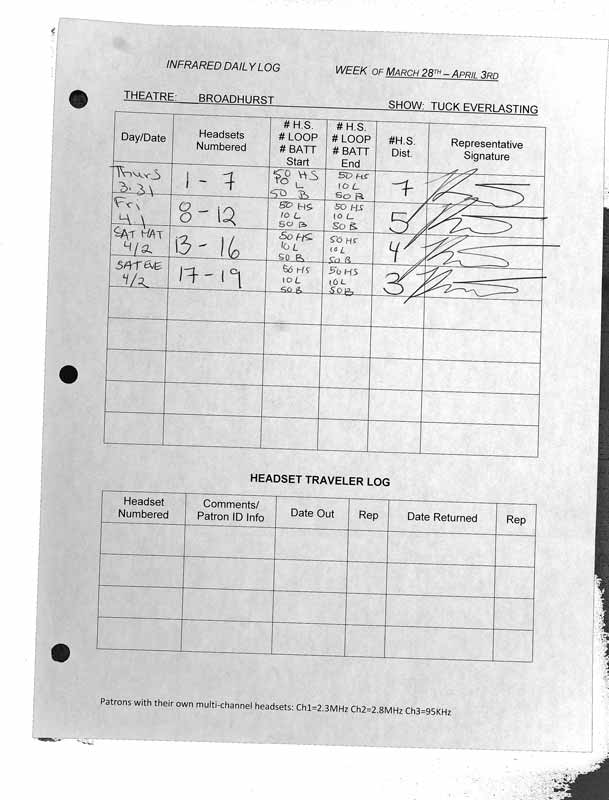 INFRARED DAILY LOG WEEK OF MARCH 28TH – APRIL 3RD
THEATRE: BROADHURST SHOW: TUCK EVERLASTING
Day/Date
Headsets
Numbered
# H.S.
# LOOP
# BATT
Start
# H.S.
# LOOP
# BATT
End
#H.S.
Dist.
Representative
Signature
Thurs
3.31
1 - 7
50 HS
10 L
50 B
50 HS
10 L
50 B
7
Fri
4.1
8 - 12
50 HS
10 L
50 B
50 HS
10 L
50 B
5
SAT MAT
4/2
13 - 16
50 HS
10 L
50 B
50 HS
10 L
50 B
4
SAT EVE
4/2
17 - 19
50 HS
10 L
50 B
50 HS
10 L
50 B
3
HEADSET TRAVELER LOG
Headset
Numbered
Comments/
Patron ID Info
Date Out
Rep
Date Returned
Rep
Patrons with their own multi-channel headsets: Ch1=2.3MHz Ch2=2.8MHz Ch3=95KHz